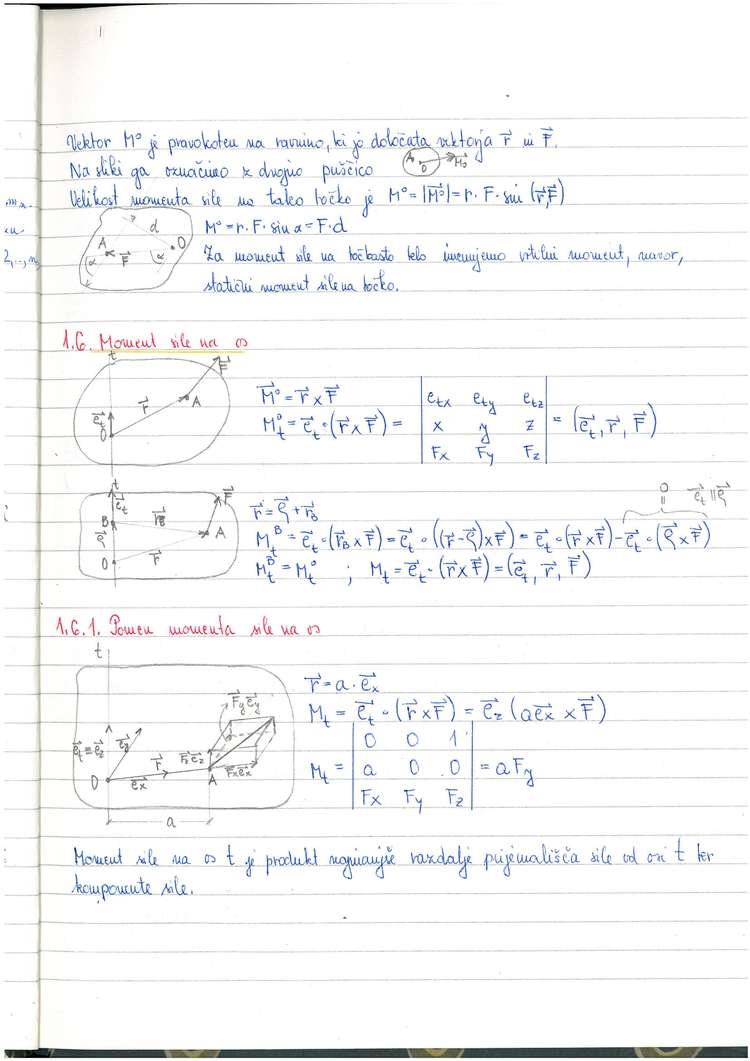 Vektor M° je pravokoten na ravnino, ki jo določata vektorja r⃗ in F⃗.
Na sliki ga označimo z dvojno puščico A O M⃗°
Velikost momenta sile na tako točko je M° = |M⃗°| = r · F · sin (r⃗,F⃗)
d A O α F⃗ α
M° = r · F · sin α = F · d
Za moment sile na točkasto telo imenujemo vrtilni moment, navor,
statični moment sile na točko.
1.6. Moment sile na os
t F⃗ r⃗ A e⃗t O
M⃗° = r⃗ x F⃗
M°t = e⃗t ∘ (r⃗ x F⃗) = | etx ety etz | = (e⃗t, r⃗, F⃗)
| x y z |
| Fx Fy Fz |
t e⃗t F⃗ B r⃗B A ρ⃗ r⃗ O
r⃗ = ρ⃗ + r⃗B
0 = e⃗t || ρ⃗
MtB = e⃗t ∘ (r⃗B x F⃗) = e⃗t ∘ ((r⃗ - ρ⃗) x F⃗) = e⃗t ∘ (r⃗ x F⃗) - e⃗t ∘ (ρ⃗ x F⃗)
MtB = Mt° ; Mt = e⃗t · (r⃗ x F⃗) = (e⃗t, r⃗, F⃗)
1.6.1. Pomen momenta sile na os
t Fy e⃗y e⃗t ≡ e⃗z e⃗y r⃗ Fz e⃗z Fx e⃗x O e⃗x A a
r⃗ = a · e⃗x
Mt = e⃗t ∘ (r⃗ x F⃗) = e⃗z (a e⃗x x F⃗)
| 0 0 1 |
Mt = | a 0 0 | = a Fy
| Fx Fy Fz |
Moment sile na os t je produkt najmanjše razdalje prijemališča sile od osi t ter
komponente sile.